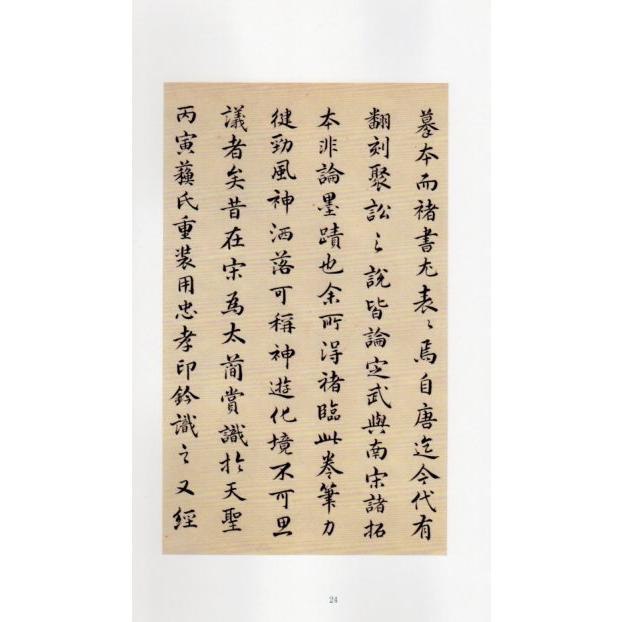 摹本而褚書尤表〻焉自唐迄今代有
翻刻聚訟〻說皆論定武與南宋諸拓
本非論墨蹟也余所得褚臨此卷筆力
健勁風神洒落可稱神遊化境不可思
議者矣昔在宋為太簡賞識於天聖
丙寅蘓氏重裝用忠孝印鈐識之又經
24